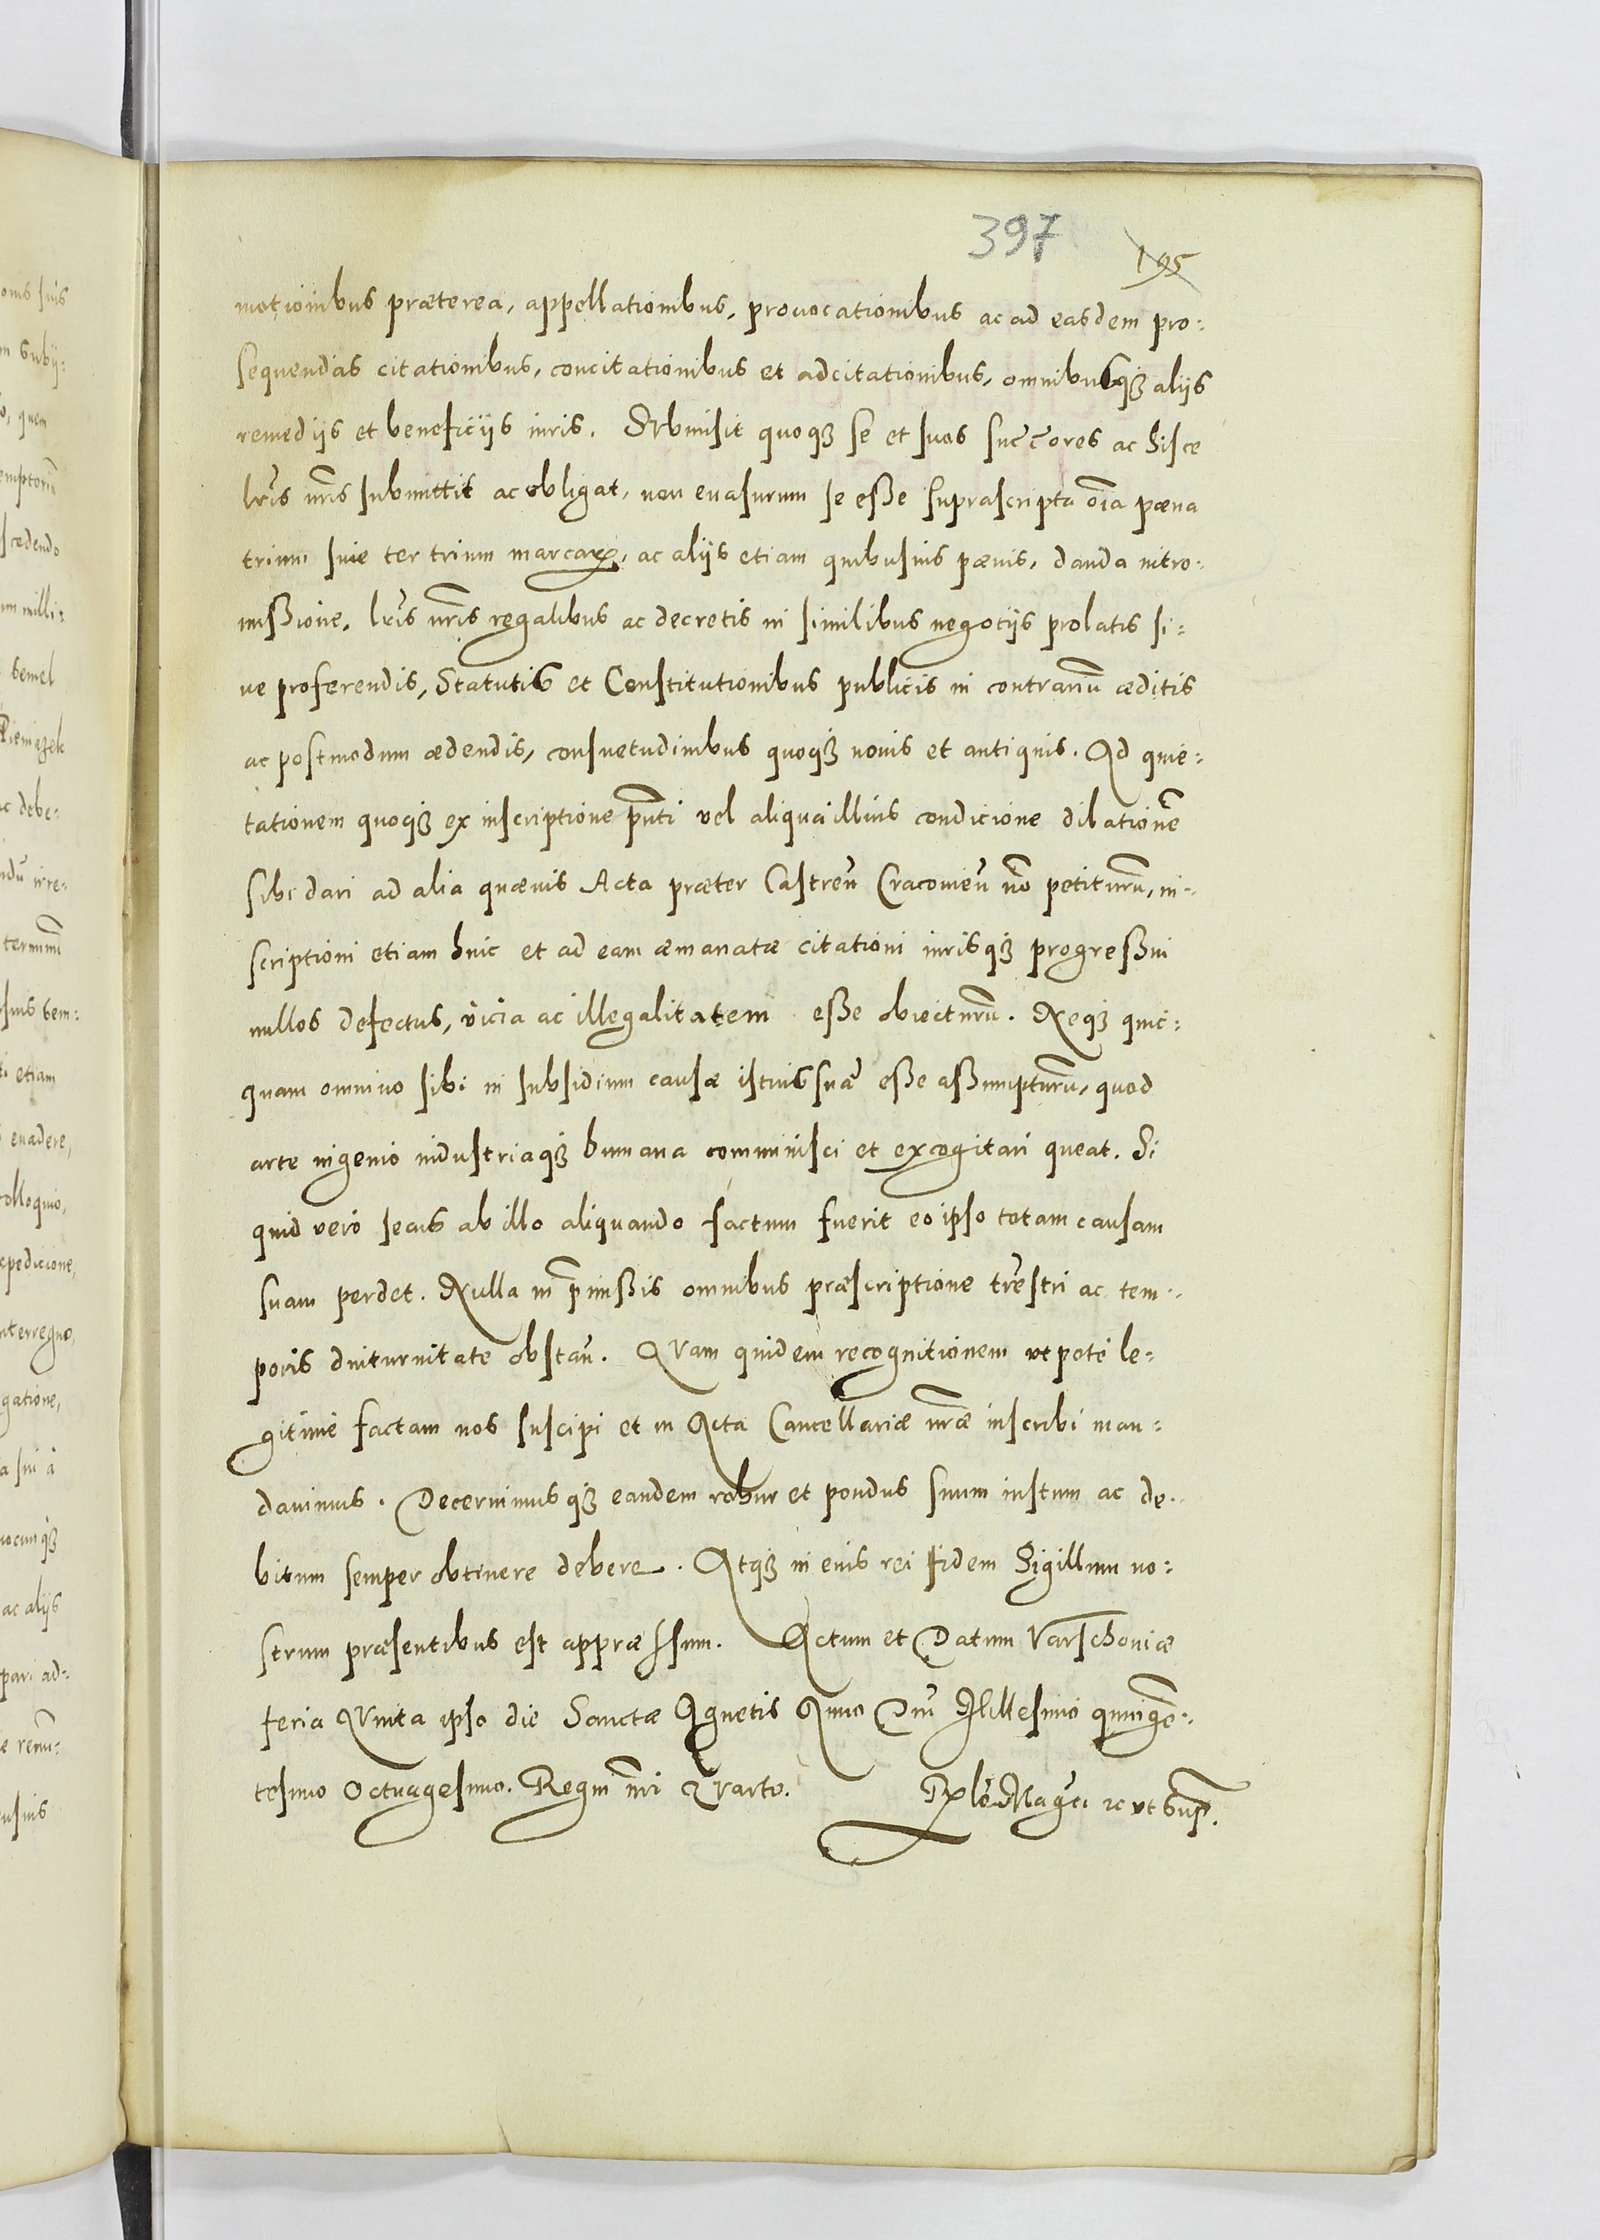 397
195
motionibus præterea, appellationibus, prouocationibus ac ad easdem pro:
sequendas citationibus, concitationibus et adcitationibus, omnibusqȝ alijs
remedijs et beneficijs iuris. Submisit quoqȝ se et suos succcores ac hisce
lris nris submittit ac obligat, non euasurum se eße suprascripta oia pæna
trium siue ter trium marcarꝝ, ac alijs etiam quibusuis pænis, danda intro:
mißione, lris nris regalibus ac decretis in similibus negotijs prolatis si:
ue proferendis, Statutis et Constitutionibus publicis in contrariū æditis
ac postmodum ædendis, consuetudinibus quoqȝ nouis et antiquis. Ad quie:
tationem quoqȝ ex inscriptione pnti vel aliqua illius condicione dilationē
sibi dari ad alia quæuis Acta præter Castreñ Cracouieñ nō petiturū, in:
scriptioni etiam huic et ad eam æmanatæ citationi iurisqȝ progreßui
nullos defectus, vicia ac illegalitatem eße obiecturū. Neqȝ quic:
quam omnino sibi in subsidium causæ istius suæ eße aßumpturū, quod
arte ingenio industriaqȝ humana comminisci et excogitari queat. Si
quid vero secus ab illo aliquando factum fuerit eo ipso totam causam
suam perdet. Nulla in pmißis omnibus præscriptione trestri ac tem:
poris diuturnitate obstañ. Quam quidem recognitionem vtpote le:
gitime factam nos suscipi et in Acta Cancellariæ nræ inscribi man:
dauimus. Decernimusqȝ eandem robur et pondus suum iustum ac de:
bitum semper obtinere debere. Atqȝ in eius rei fidem Sigillum no:
strum præsentibus est appræssum. Actum et Datum Varschouiæ
feria Quinta ipso die Sanctæ Agnetis Anno Dñi Millesimo quingē:
tesimo Octuagesimo. Regni nri Quarto. Rxlo Magci &c vt sup.